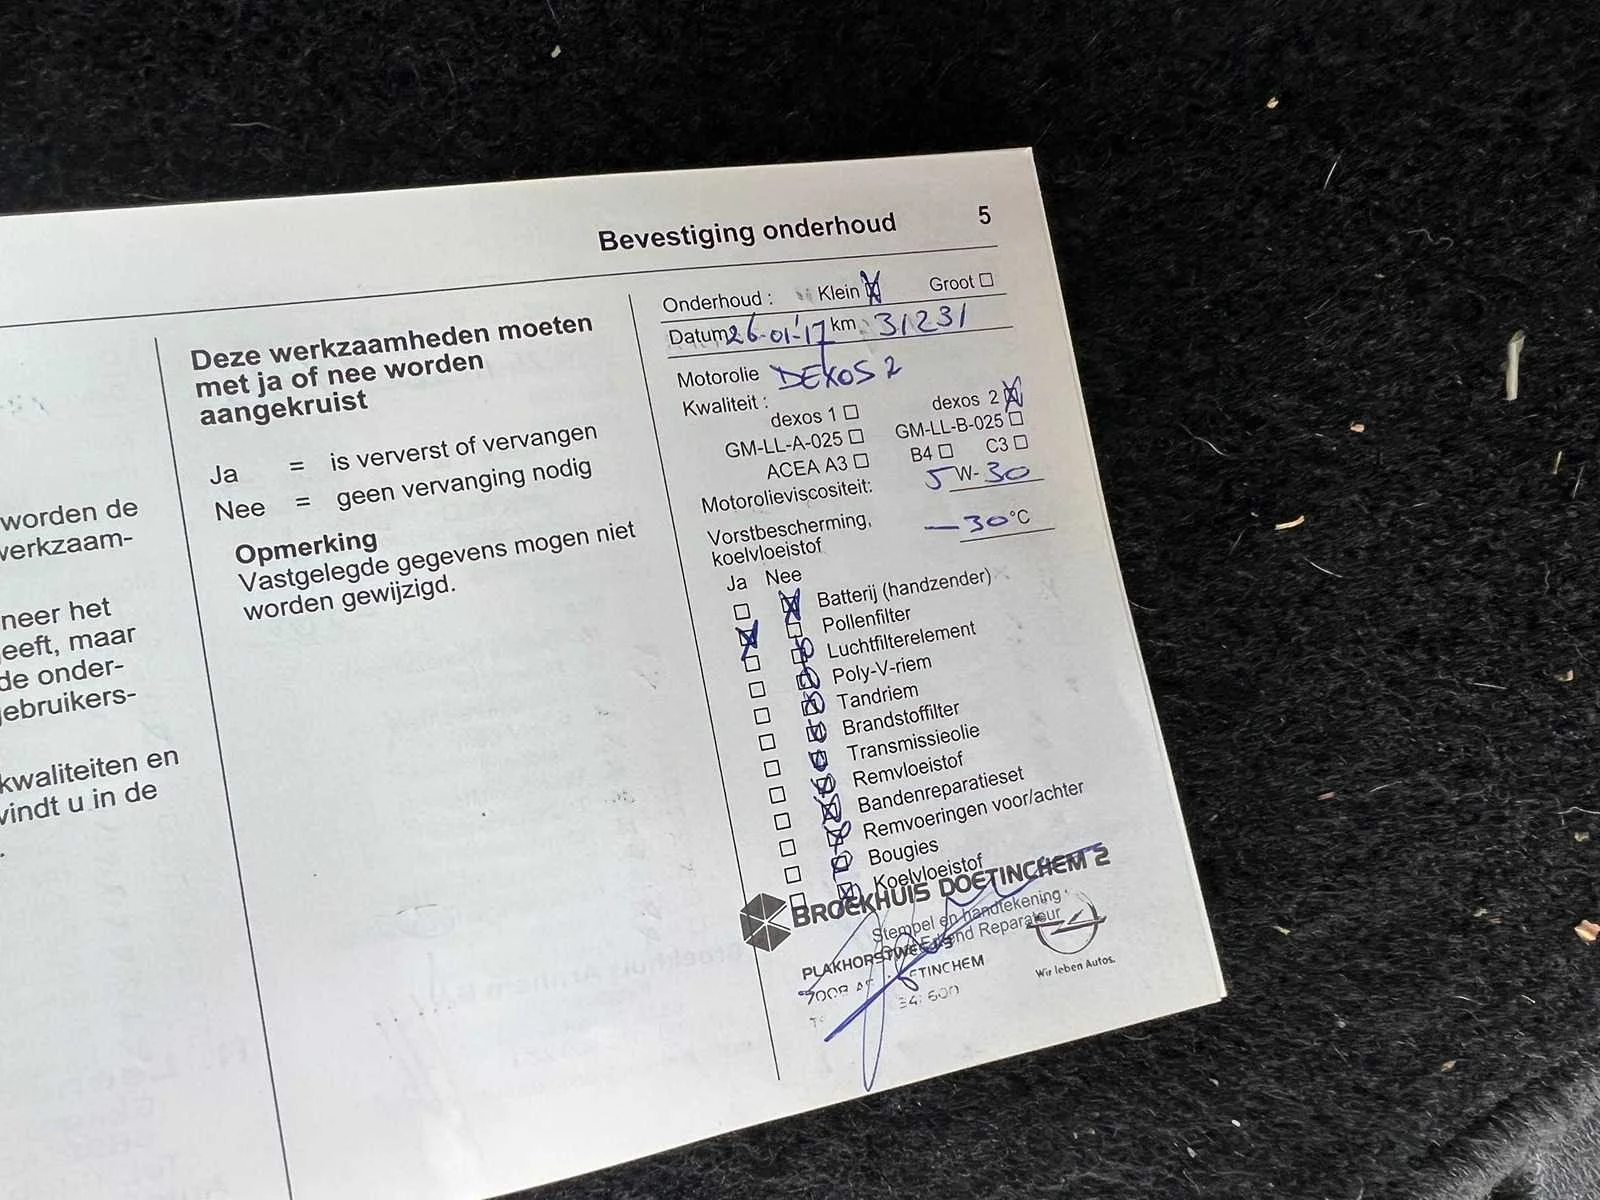 Bevestiging onderhoud 5
worden de
werkzaam-
neer het
eeft, maar
de onder-
gebruikers-
kwaliteiten en
vindt u in de
Deze werkzaamheden moeten
met ja of nee worden
aangekruist
Ja = is ververst of vervangen
Nee = geen vervanging nodig
Opmerking
Vastgelegde gegevens mogen niet
worden gewijzigd.
Onderhoud : Klein Groot
Datum 26-01-'17 km 31231
Motorolie DEXOS 2
Kwaliteit :
dexos 1 dexos 2
GM-LL-A-025 GM-LL-B-025
ACEA A3 B4 C3
Motorolieviscositeit: 5 W-30
Vorstbescherming,
koelvloeistof -30°C
Ja Nee
Batterij (handzender)
Pollenfilter
Luchtfilterelement
Poly-V-riem
Tandriem
Brandstoffilter
Transmissieolie
Remvloeistof
Bandenreparatieset
Remvoeringen voor/achter
Bougies
Koelvloeistof
BROEKHUIS DOETINCHEM 2
Stempel en handtekening
Erkend Reparateur
Wir leben Autos.